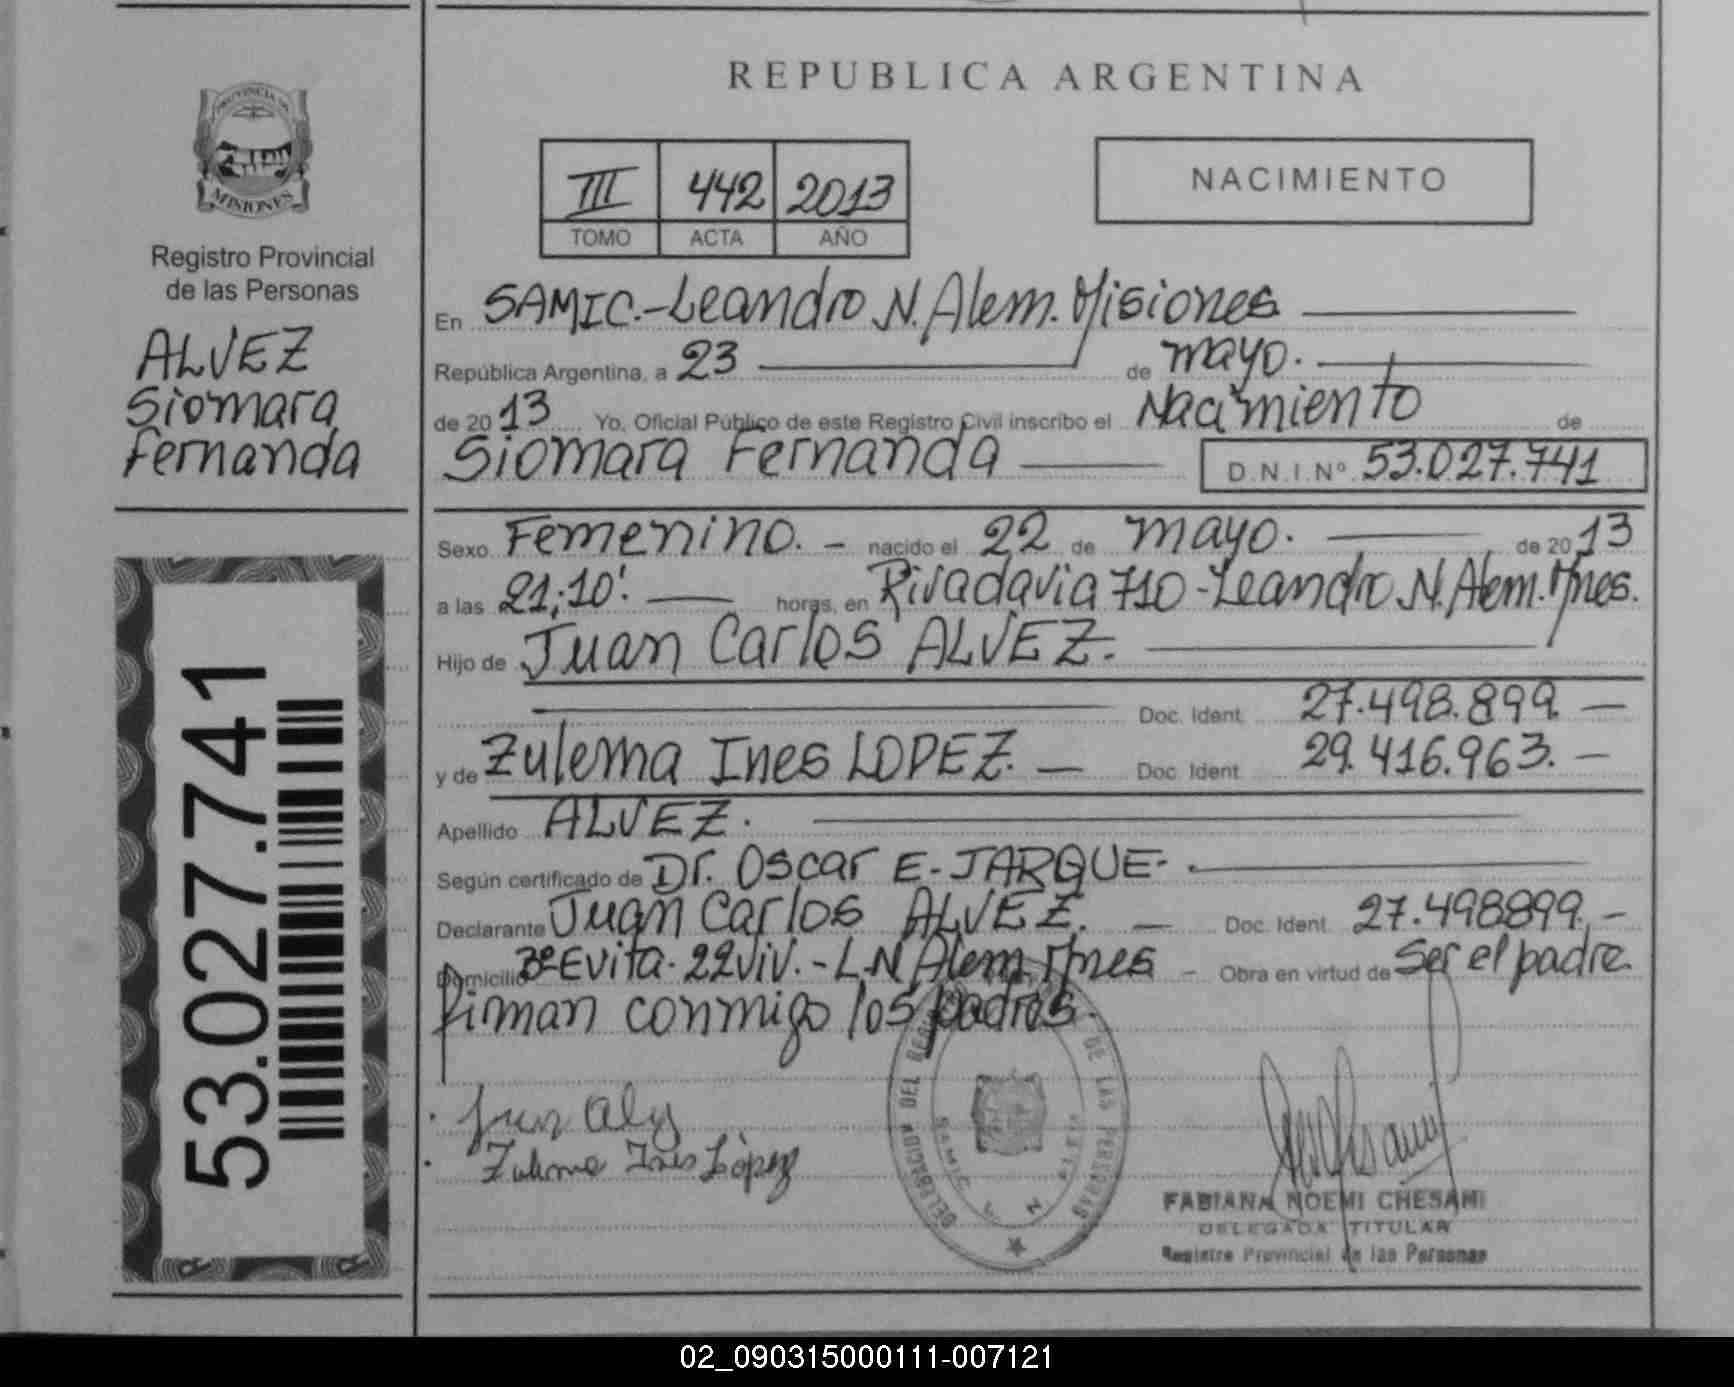 REPUBLICA ARGENTINA
PROVINCIA DE
MISIONES
Registro Provincial
de las Personas
ALVEZ
Siomara
Fernanda
III 442 2013
TOMO ACTA AÑO
NACIMIENTO
En SAMIC.-Leandro N. Alem. Misiones
República Argentina, a 23 de mayo.
de 2013 Yo, Oficial Público de este Registro Civil inscribo el Nacimiento de
Siomara Fernanda D.N.I.Nº 53.027.741
Sexo Femenino. - nacido el 22 de mayo. de 2013
a las 21;10' horas, en Rivadavia 710-Leandro N. Alem. Mnes.
Hijo de Juan Carlos ALVEZ.
Doc. Ident. 27.498.899. -
y de Zulema Ines LOPEZ. - Doc. Ident. 29.416.963. -
Apellido ALVEZ.
Según certificado de Dr. Oscar E. JARQUE.
Declarante Juan Carlos ALVEZ. - Doc. Ident. 27.498899. -
Domicilio Bº Evita. 22 viv. - L N Alem. Mnes - Obra en virtud de Ser el padre.
firman conmigo los padres.
Zulema Ines López
DE LAS PERSONAS
SAMIC
FABIANA NOEMI CHESANI
DELEGADA TITULAR
Registro Provincial de las Personas
53.027.741
02_090315000111-007121